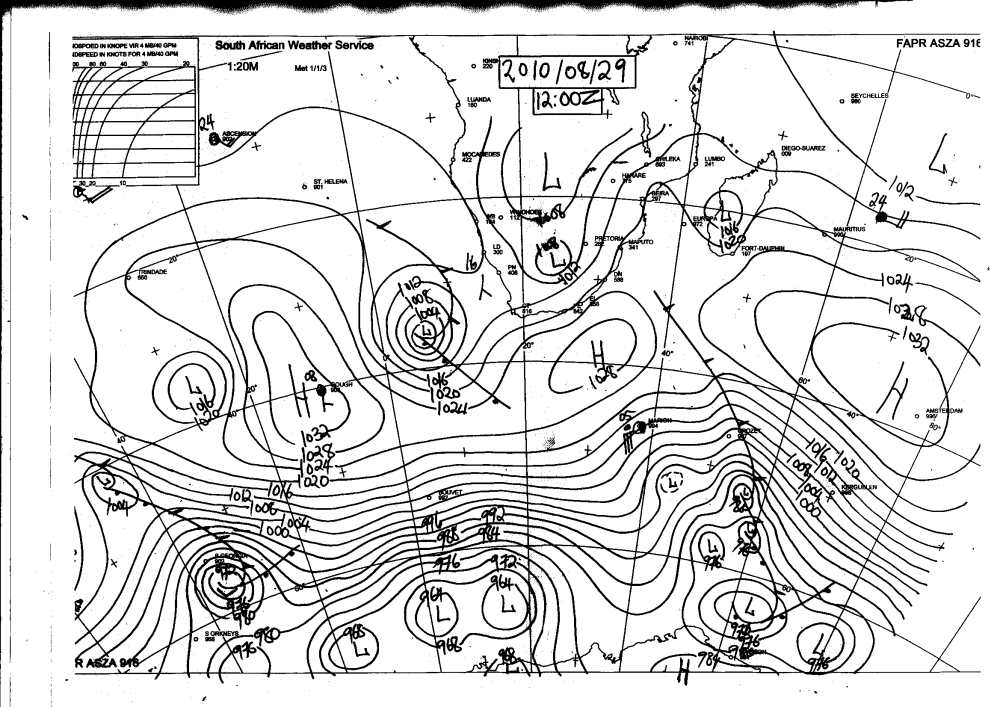 South African Weather Service
FAPR ASZA 916
INDSPOED IN KNOPE VIR 4 MB/40 GPM
INDSPEED IN KNOTS FOR 4 MB/40 GPM
1:20M
Met 1/1/3
2010/08/29
12:00Z
80 60 40 30 20
30 20 10
NAIROBI
741
220
SEYCHELLES
980
LUANDA
160
24
ASCENSION
MOCAMEDES
422
L
L
DIEGO-SUAREZ
009
LUMBO
241
693
HARARE
BEIRA
297
ST. HELENA
901
1012
24
WINDHOEK
112
EUROPA
672
L
1016
1020
MAURITIUS
PRETORIA
262
MAPUTO
341
FORT-DAUPHIN
197
LD
300
PN
406
1008
L
1012
DN
588
16
TRINDADE
650
20°
20°
0°
1024
1028
1032
1012
1008
1004
L
816
842
20°
40°
H
1028
H
L
1016
1020
08
H
GOUGH
0°
20°
40°
1016
1020
1024
60°
40°
AMSTERDAM
996
80°
05
MARION
CROZET
1032
1028
1024
1020
40°
1016
1020
1012
1008
1004
1000
KERGUELEN
L
1004
1012
1016
1008
1004
1000
BOUVET
992
L
996
992
988
984
976
972
L
976
S GEORGIA
976
980
60°
964
L
964
L
968
L
60°
S ORKNEYS
988
980
976
968
L
968
L
976
984
H
L
976
R ASZA 916